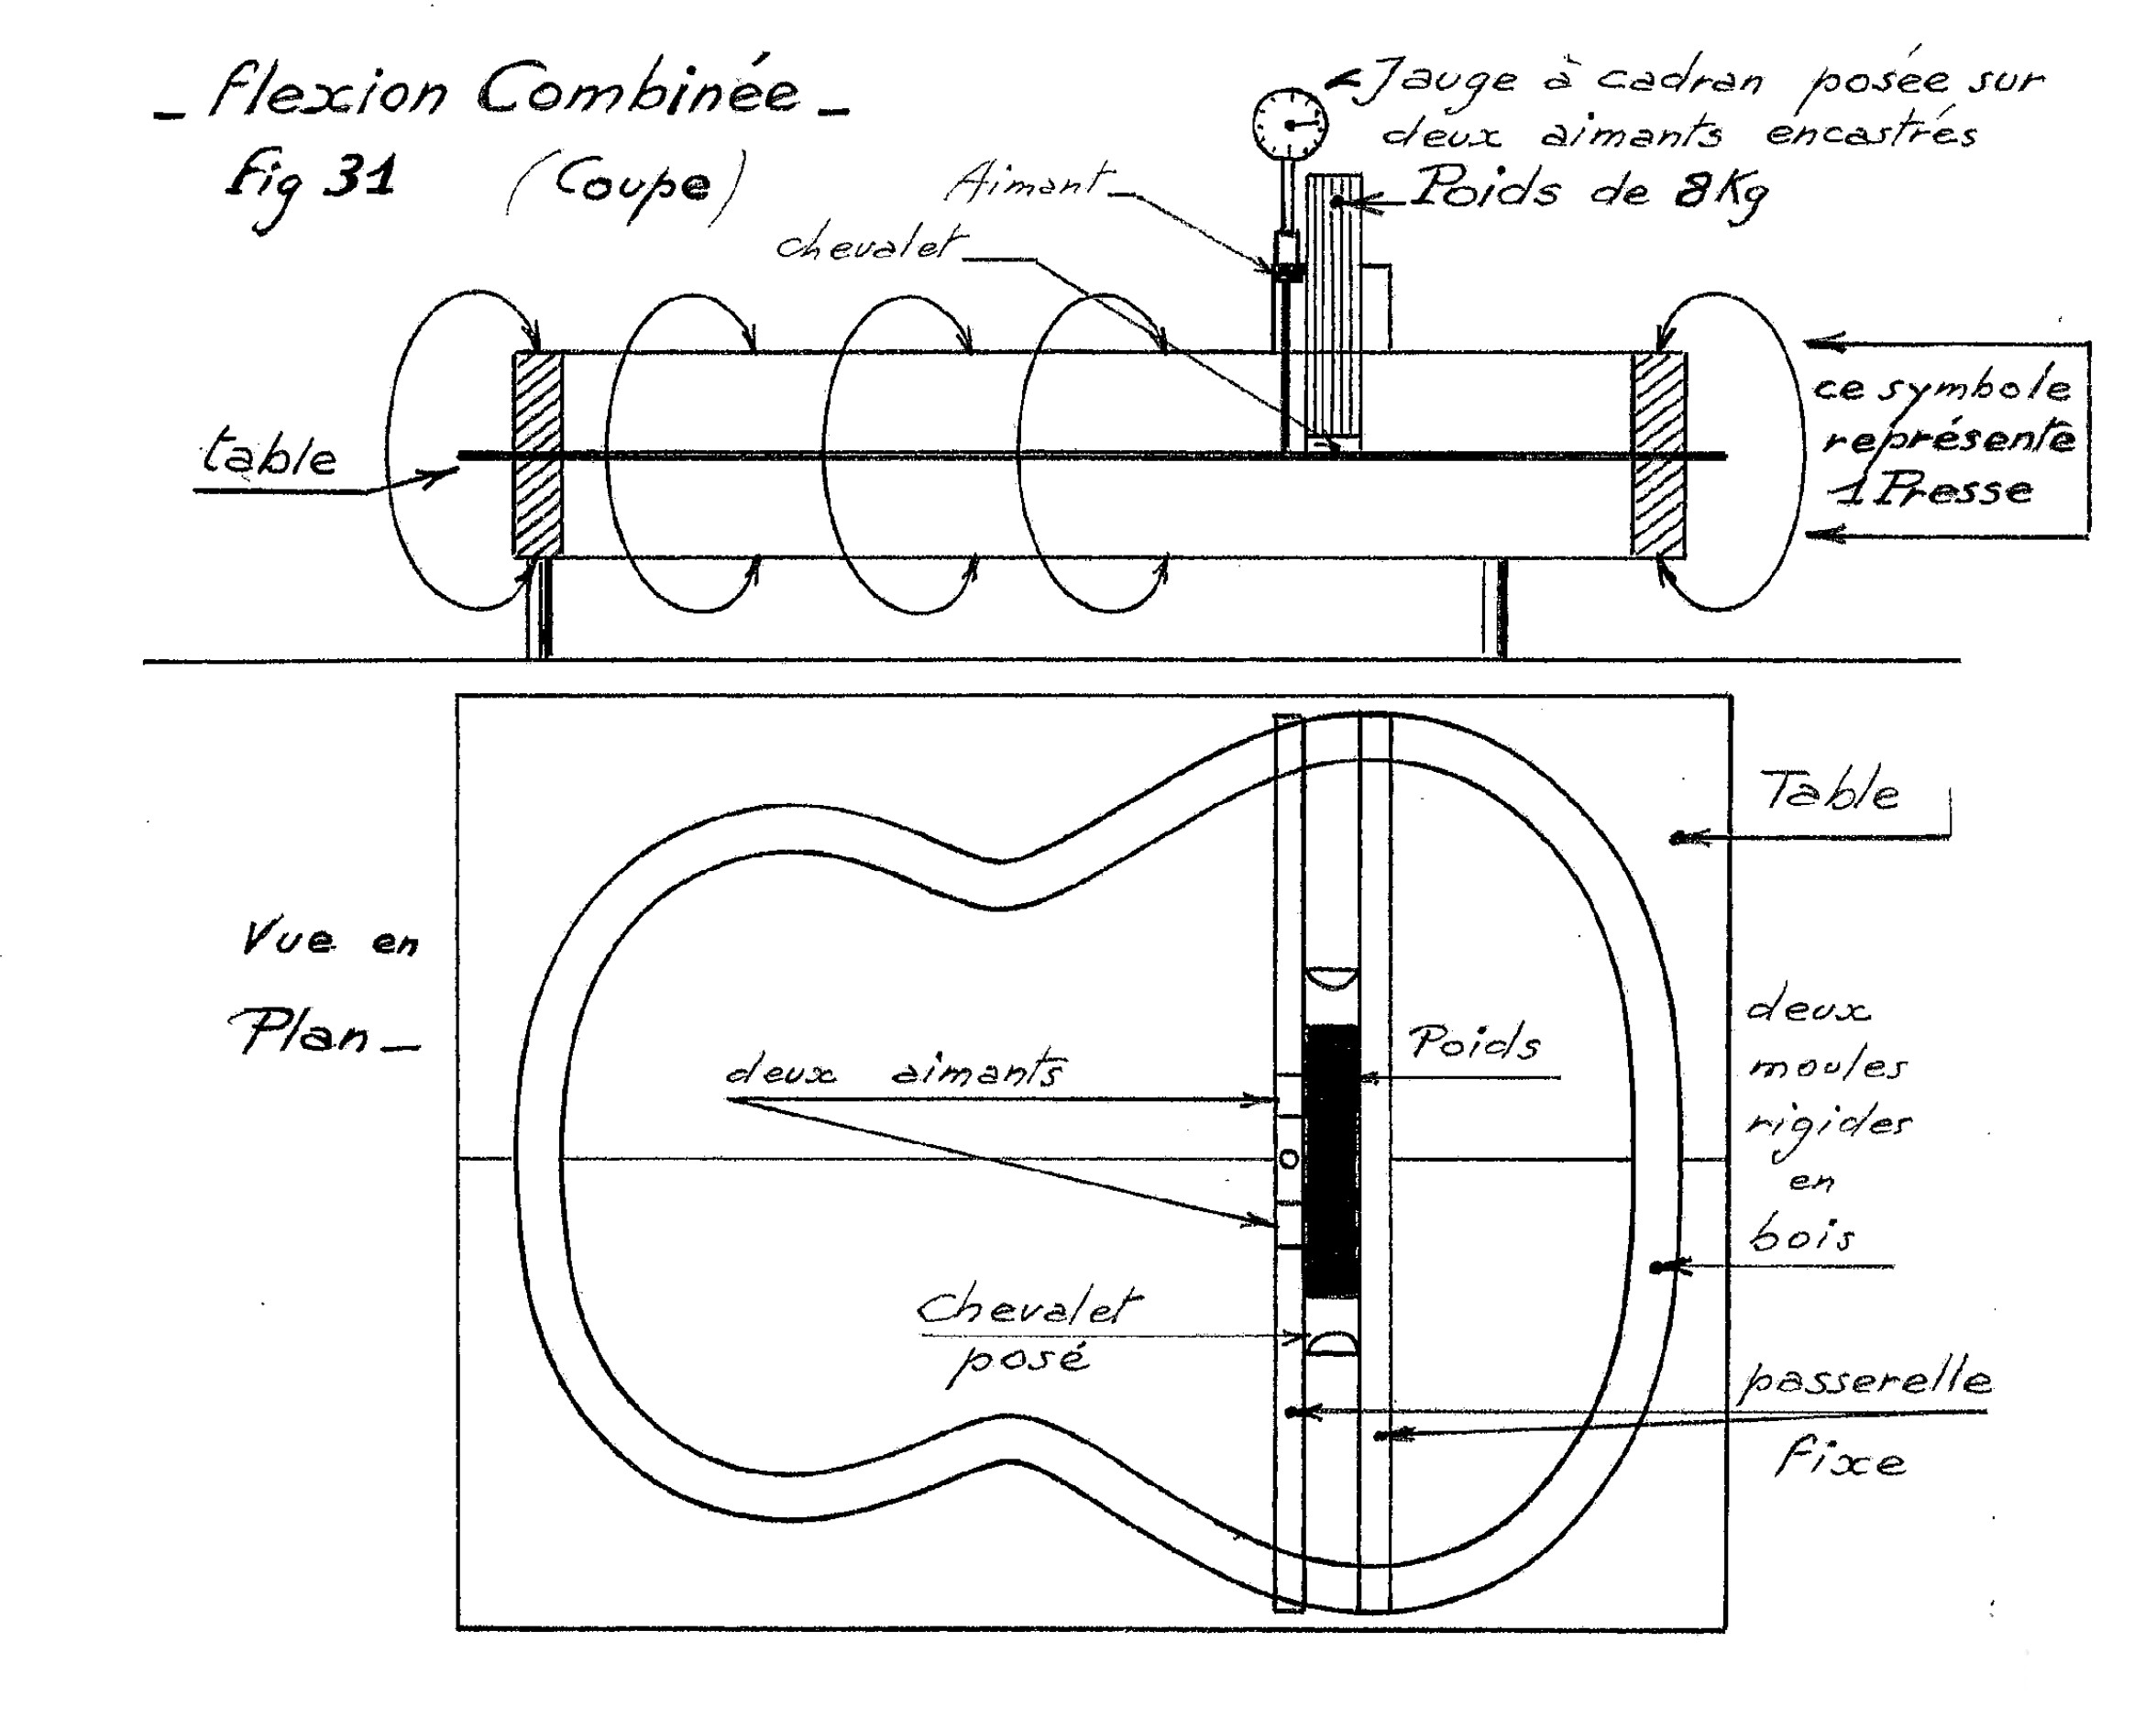 _ Flexion Combinée _
Fig 31 (Coupe)
Jauge à cadran posée sur
deux aimants encastrés
Aimant
Poids de 8Kg
chevalet
table
ce symbole
représente
1 Presse
Table
Vue en
Plan _
deux
moules
rigides
en
bois
Poids
deux aimants
Chevalet
posé
passerelle
fixe